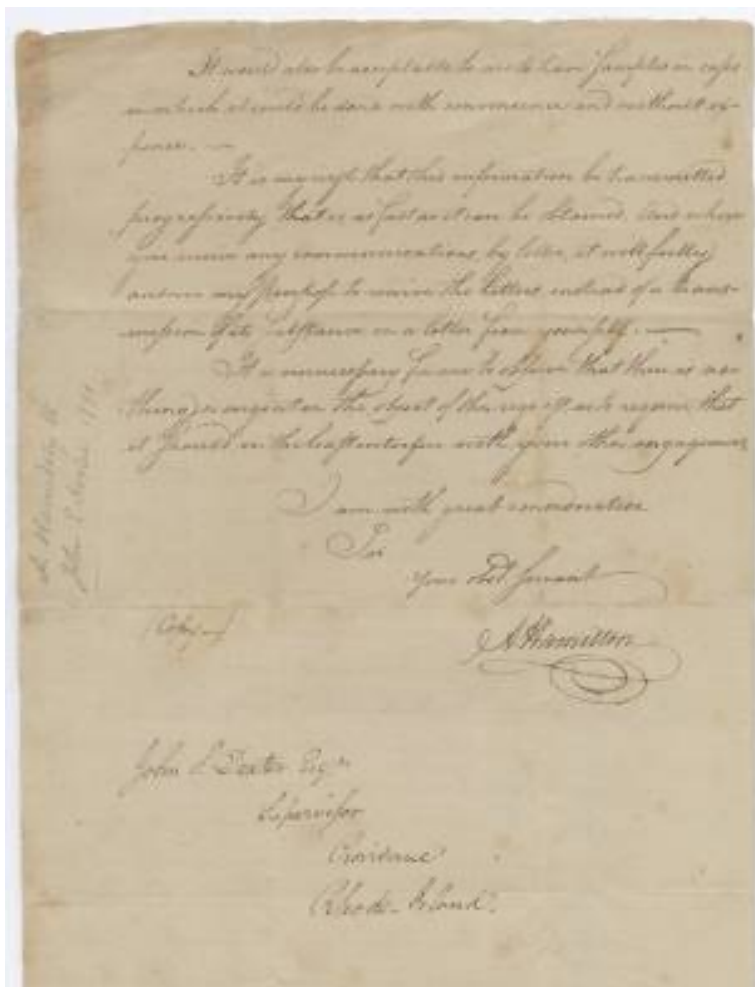 It would also be acceptable to me to have Samples in cases
in which it could be done with convenience and without ex-
pence. —
It is my wish that this information be transmitted
progressively that is as fast as it can be obtained. And where
you receive any communications by letter, it will fully
answer my purpose to receive the letters instead of a trans-
mission of its substance in a letter from yourself. —
It is unnecessary for me to observe that there is no-
thing so urgent in the object of this as to require that
it should in the least interfere with your other engagements
I am with great consideration
Sir
Your Obed. Servant
A Hamilton
(Copy—)
John S Dexter Esqr
Supervisor
Providence
Rhode-Island.
A Hamilton to
John S Dexter 1791